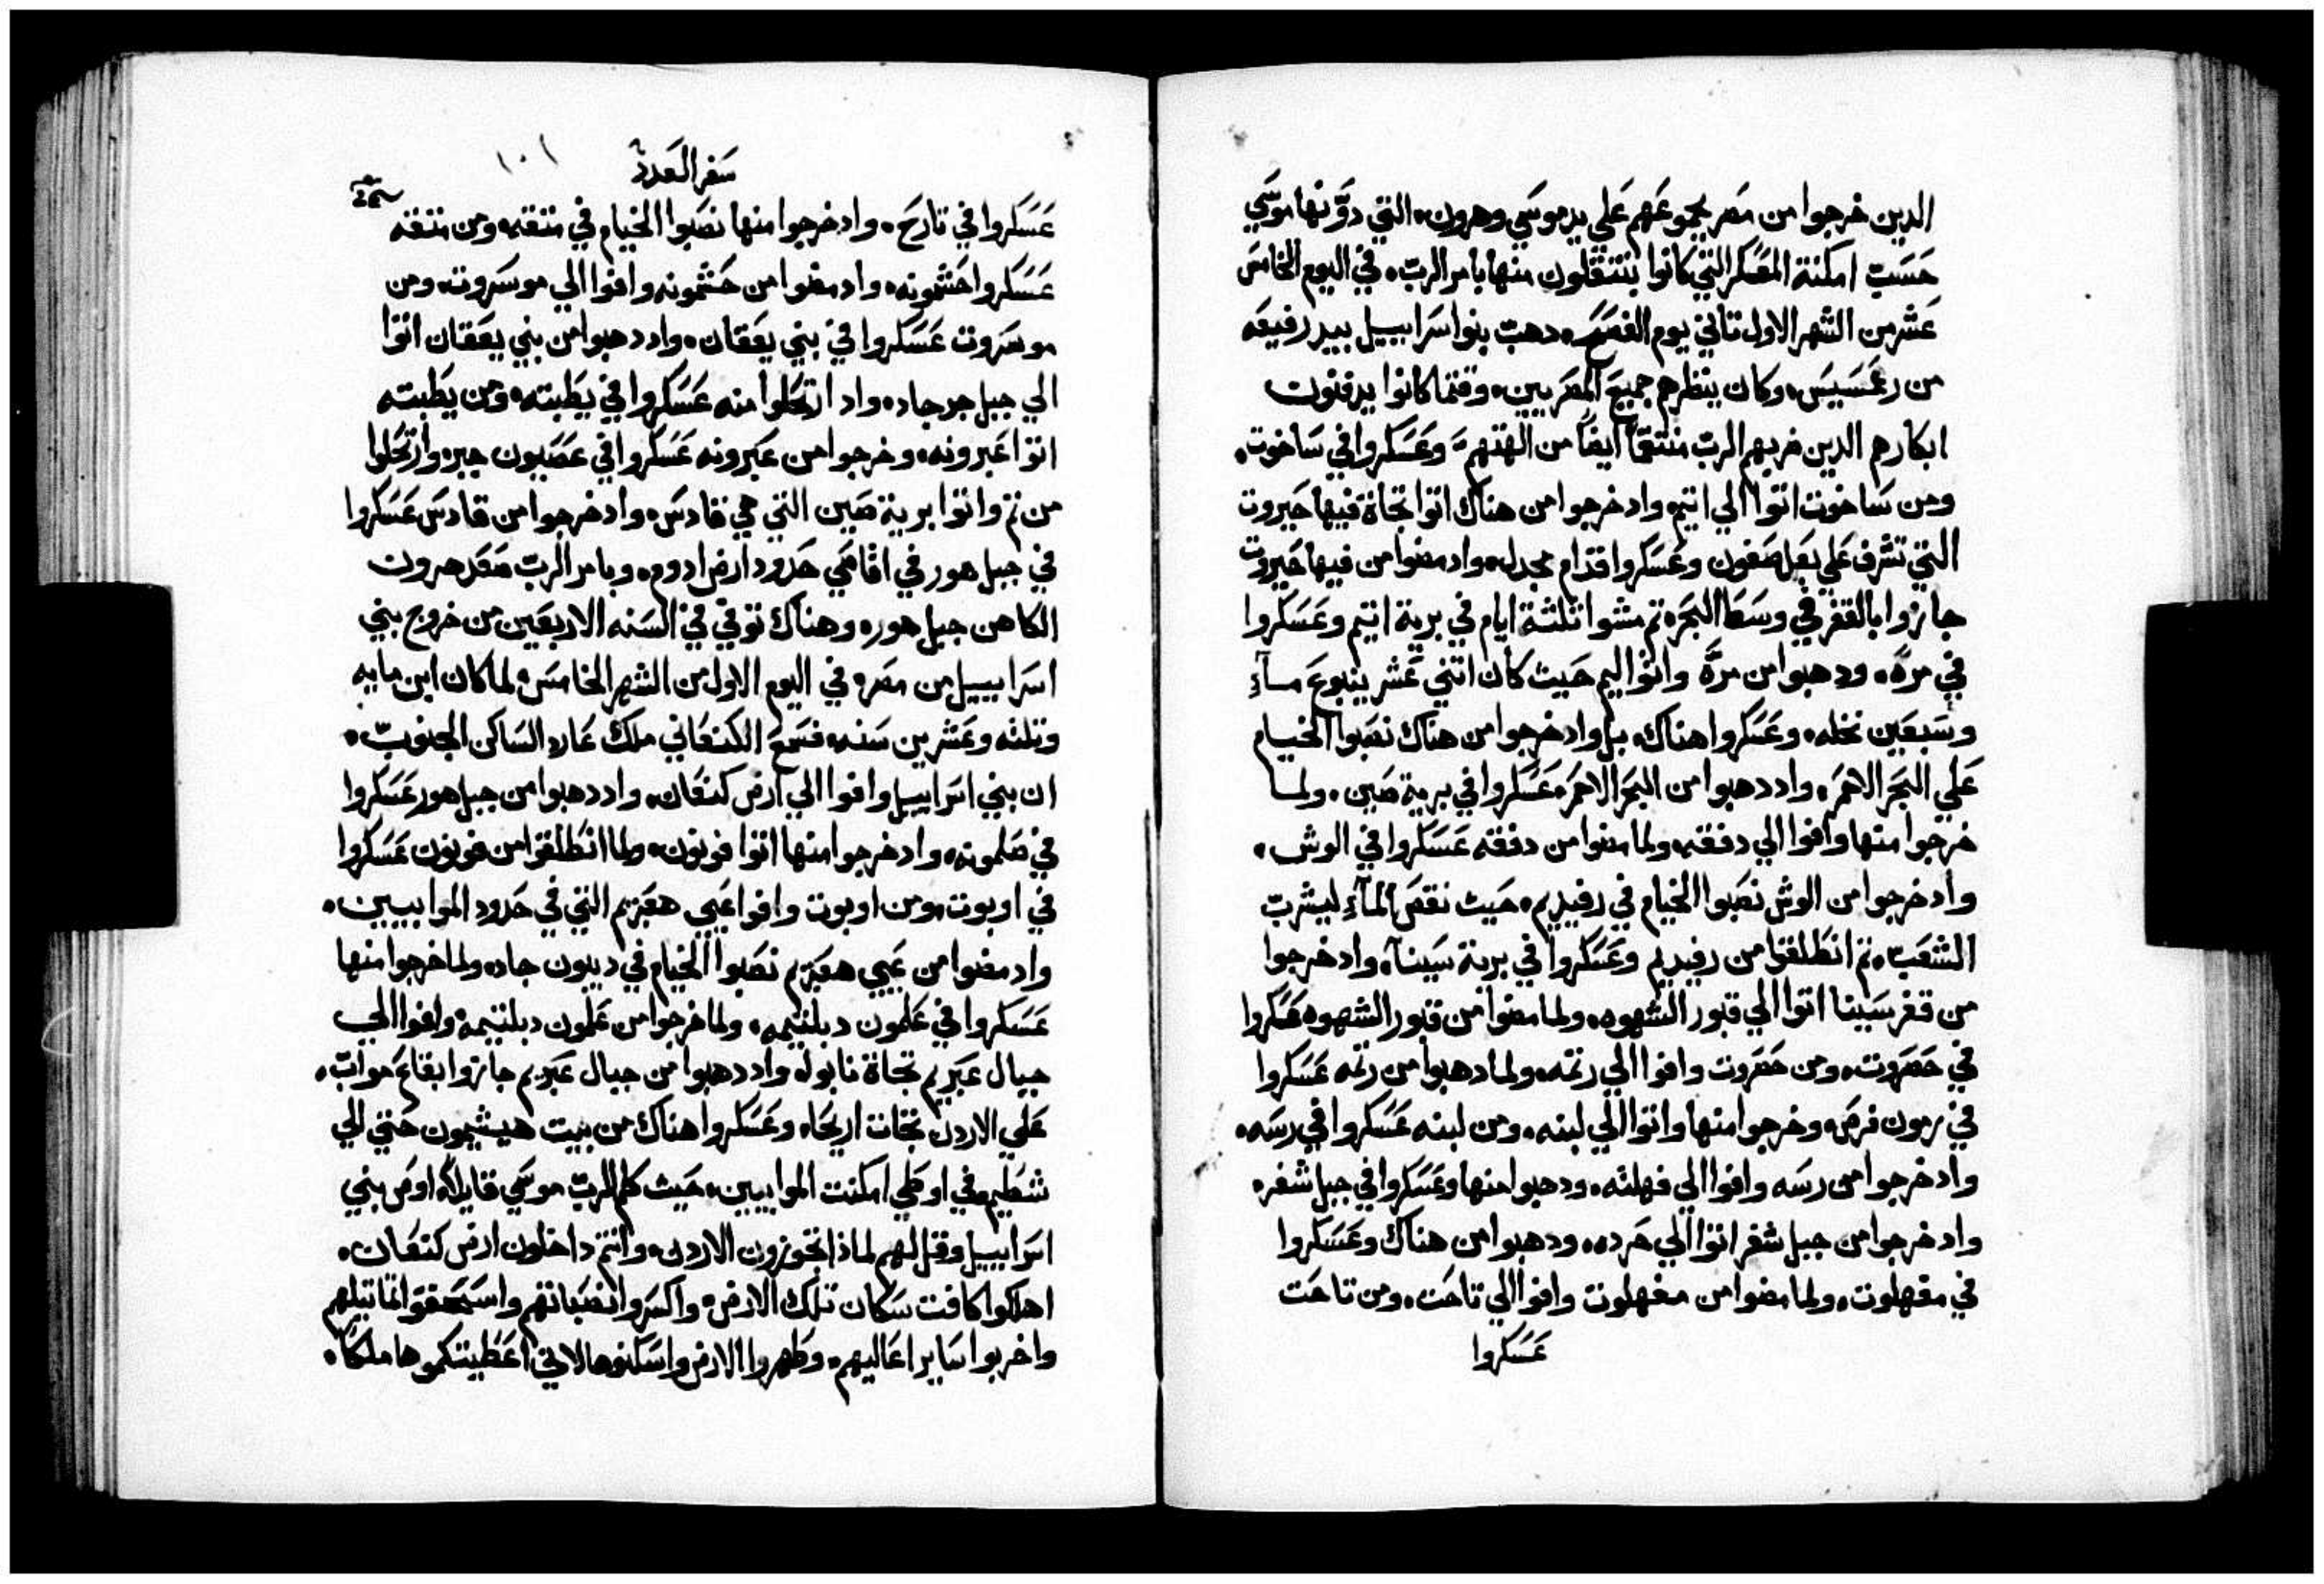 الدين خرجوا من مصر بجموعهم علي يد موسي وهرون، التي دوّنها موسي
حسب امكنة المعسكر التي كانوا ينتقلون منها بامر الربّ، في اليوم الخامس
عشر من الشهر الاول تاني يوم الفصح، دهب بنوا سراييل بيد رفيعه
من رعمسيس، وكان ينظرهم جميع المصريين، وقتما كانوا يدفنون
ابكارهم الدين ضربهم الربّ منتقماً ايضاً من الهتهم، وعسكروا في ساخوت،
ومن ساخوت اتوا الي اتيم، واد خرجوا من هناك اتوا تجاة فيها حيروت
التي تشرف علي بعل صفون وعسكروا قدام مجدل، واد مضوا من فيها حيروت
جازوا بالقفر في وسط البحر، تم مشوا تلثة ايام في برية اتيم وعسكروا
في مرّه، ودهبوا من مرّة واتوا اليم حيث كان اتني عشر ينبوع مآءٍ
وسبعين نخله، وعسكروا هناك، بل واد خرجوا من هناك نصبوا الخيام
علي البحر الاحمر، واد دهبوا من البحر الاحمر، عسكروا في برية صين، ولما
خرجوا منها وافوا الي دفقه، ولما مضوا من دفقه عسكروا في الوش،
واد خرجوا من الوش نصبوا الخيام في رفيديم، حيث نقص المآءِ ليشرب
الشعب، تم انطلقوا من رفيديم وعسكروا في برية سينآ، واد خرجوا
من قفر سينا اتوا الي قبور الشهوه، ولما مضوا من قبور الشهوه عسكروا
في حصروت، ومن حصروت وافوا الي رتمه، ولما دهبوا من رتمه عسكروا
في رمون فرص، وخرجوا منها واتوا الي لبنه، ومن لبنه عسكروا في رسه،
واد خرجوا من رسه وافوا الي قهلته، ودهبوا منها وعسكروا في جبل شفر،
واد خرجوا من جبل شفر اتوا الي حرده، ودهبوا من هناك وعسكروا
في مقهلوت، ولما مضوا من مقهلوت وافوا الي تاحت، ومن تاحت
عسكروا
سفر العدد
١٠١
عسكروا في تارح، واد خرجوا منها نصبوا الخيام في متقه، ومن متقه
عسكروا حشمونه، واد مضوا من حشمونه وافوا الي موسروت، ومن
موسروت عسكروا في بني يعقان، واد دهبوا من بني يعقان اتوا
الي جبل جرجاد، واد ارتحلوا منه عسكروا في يطبته، ومن يطبته
اتوا عبرونه، وخرجوا من عبرونه عسكروا في عصيون جبر، وارتحلوا
من تم واتوا برية صين التي هي قادس، واد خرجوا من قادس عسكروا
في جبل هور في اقاصي حدود ارض ادوم، وبامر الربّ صعد هرون
الكاهن جبل هور، وهناك توفي في السنه الاربعين من خروج بني
اسراييل من مصر، في اليوم الاول من الشهر الخامس، لما كان ابن مايه
وتلثه وعشرين سنه، فسمع الكنعاني ملك عارد الساكن الجنوب،
ان بني اسراييل وافوا الي ارض كنعان، واد دهبوا من جبل هور عسكروا
في صلمونه، واد خرجوا منها اتوا فونون، ولما انطلقوا من فونون عسكروا
في اوبوت، ومن اوبوت وافوا عيي هعبريم التي في حدود الموابيين،
واد مضوا من عيي هعبريم نصبوا الخيام في ديبون جاد، ولما خرجوا منها
عسكروا في علمون دبلتيمه، ولما خرجوا من علمون دبلتيمة وافوا الي
جبال عبريم تجاة نابو، واد دهبوا من جبال عبريم جازوا بقاع مواب،
علي الاردن تجات اريحا، وعسكروا هناك من بيت هيشيمون حتي الي
شطيم في اوطي امكنت الموابيين، حيث كلم الربّ موسي قايلاً، اوص بني
اسراييل وقل لهم لماذا تجوزون الاردن، وانتم داخلون ارض كنعان،
اهلكوا كافت سكان تلك الارض، واكسروا نصباتهم واسحقوا تماتيلهم
واخربوا ساير اعاليهم، وطهروا الارض واسكنوها لاني اعطيتكموها ملكاً،